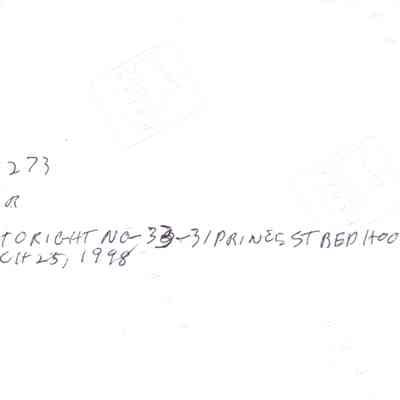 273
R
TO RIGHT NO 33-31 PRINCS ST RED HOO
CH 25, 1998